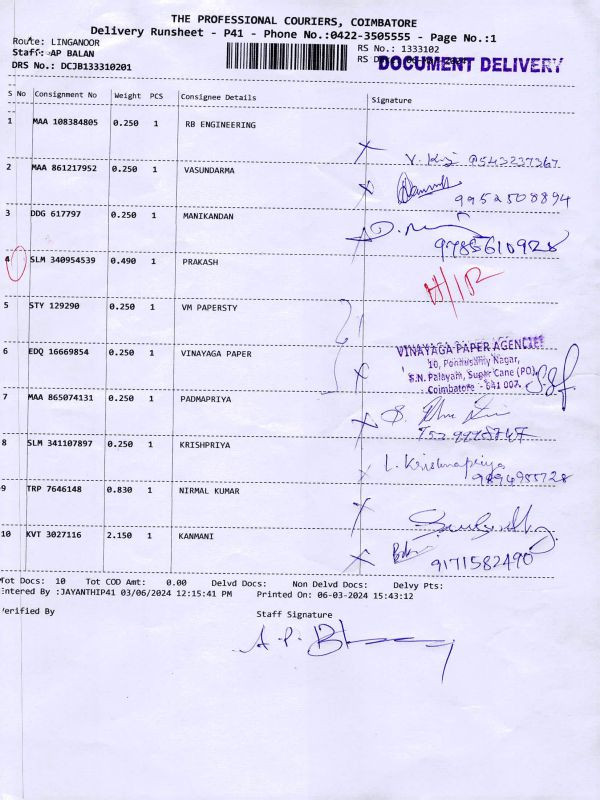 THE PROFESSIONAL COURIERS, COIMBATORE
Delivery Runsheet - P41 - Phone No.:0422-3505555 - Page No.:1
Route: LINGANOOR
RS No.: 1333102
Staff: AP BALAN
RS
DOCUMENT DELIVERY
DRS No.: DCJB133310201
S No Consignment No Weight PCS Consignee Details Signature
1 MAA 108384805 0.250 1 RB ENGINEERING
2 MAA 861217952 0.250 1 VASUNDARMA
9952508894
3 DDG 617797 0.250 1 MANIKANDAN
9785610928
4 SLM 340954539 0.490 1 PRAKASH
5 STY 129290 0.250 1 VM PAPERSTY
6 EDQ 16669854 0.250 1 VINAYAGA PAPER
VINAYAGA PAPER AGENCIES
10, Ponnusamy Nagar,
S.N. Palayam, Sugar Cane (PO),
Coimbatore - 641 007.
7 MAA 865074131 0.250 1 PADMAPRIYA
8 SLM 341107897 0.250 1 KRISHPRIYA
L. Krishnapriya
9894955728
9 TRP 7646148 0.830 1 NIRMAL KUMAR
10 KVT 3027116 2.150 1 KANMANI
9171582490
Tot Docs: 10 Tot COD Amt: 0.00 Delvd Docs: Non Delvd Docs: Delvy Pts:
Entered By :JAYANTHIP41 03/06/2024 12:15:41 PM Printed On: 06-03-2024 15:43:12
Verified By Staff Signature
A.P.